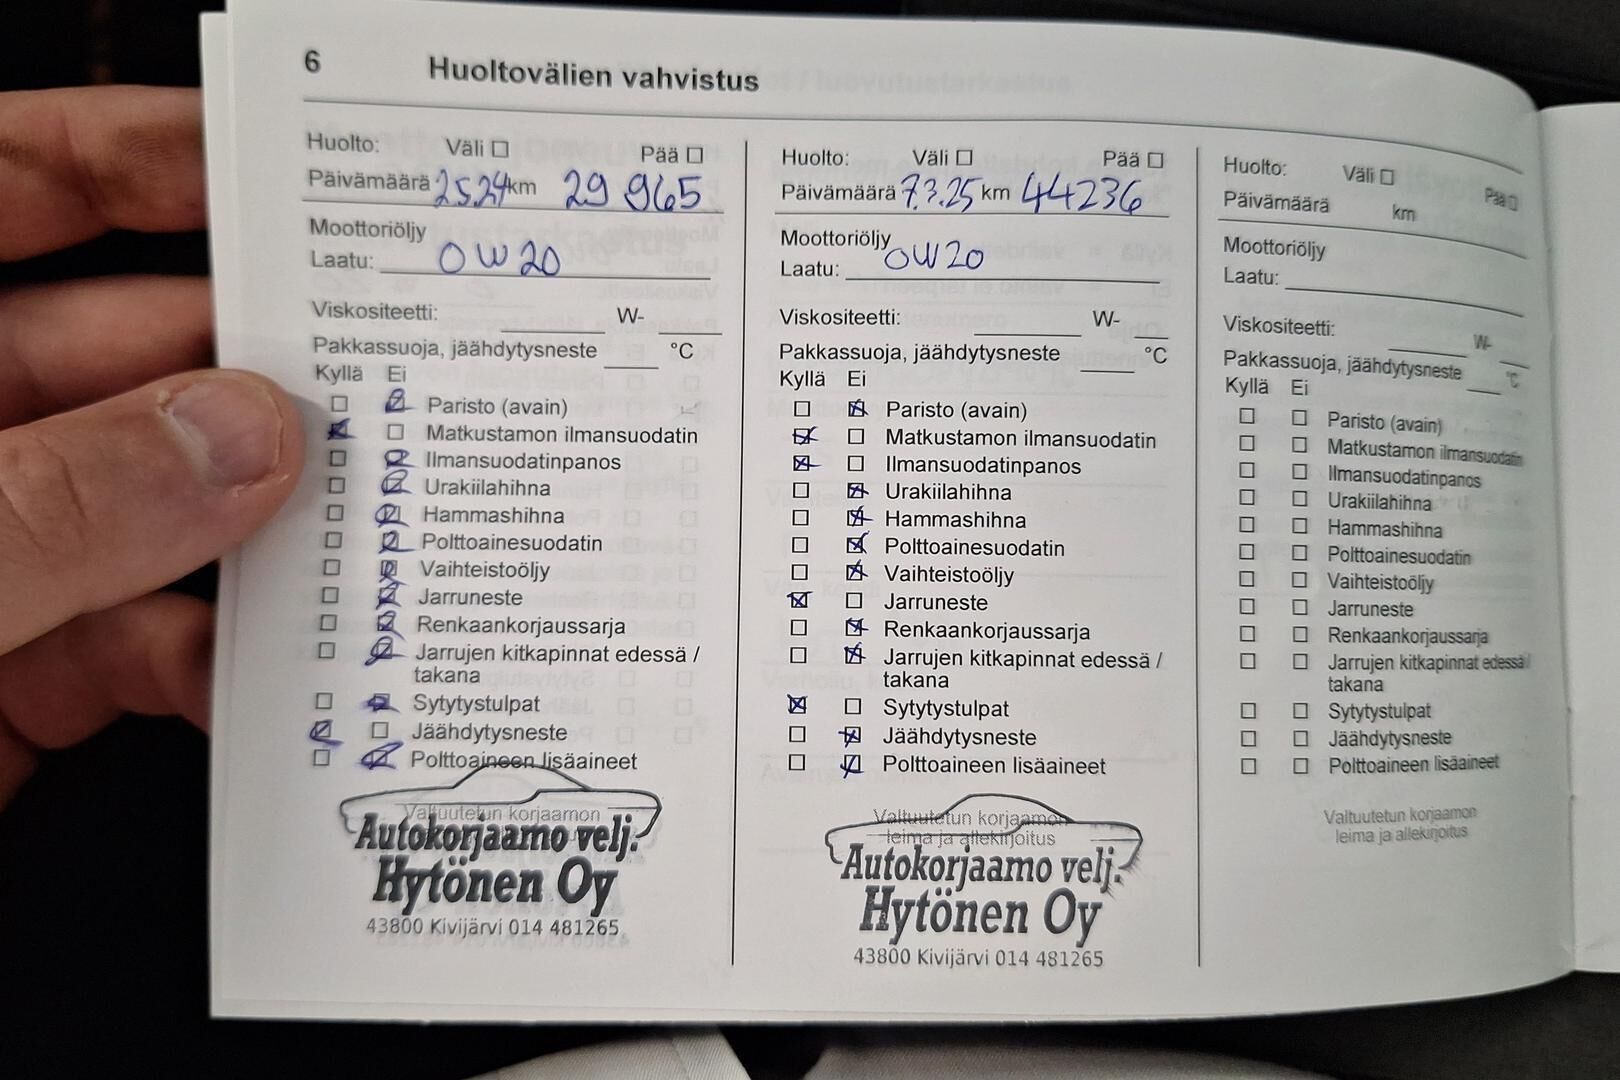 6 Huoltovälien vahvistus
Huolto: Väli ☐ Pää ☐
Päivämäärä 2.5.24 km 29 965
Moottoriöljy
Laatu: 0W20
Viskositeetti: W-
Pakkassuoja, jäähdytysneste °C
Kyllä Ei
Paristo (avain)
Matkustamon ilmansuodatin
Ilmansuodatinpanos
Urakiilahihna
Hammashihna
Polttoainesuodatin
Vaihteistoöljy
Jarruneste
Renkaankorjaussarja
Jarrujen kitkapinnat edessä /
takana
Sytytystulpat
Jäähdytysneste
Polttoaineen lisäaineet
Valtuutetun korjaamon
Autokorjaamo velj.
Hytönen Oy
43800 Kivijärvi 014 481265
Huolto: Väli ☐ Pää ☐
Päivämäärä 7.3.25 km 44236
Moottoriöljy
Laatu: 0W20
Viskositeetti: W-
Pakkassuoja, jäähdytysneste °C
Kyllä Ei
Paristo (avain)
Matkustamon ilmansuodatin
Ilmansuodatinpanos
Urakiilahihna
Hammashihna
Polttoainesuodatin
Vaihteistoöljy
Jarruneste
Renkaankorjaussarja
Jarrujen kitkapinnat edessä /
takana
Sytytystulpat
Jäähdytysneste
Polttoaineen lisäaineet
Valtuutetun korjaamon
leima ja allekirjoitus
Autokorjaamo velj.
Hytönen Oy
43800 Kivijärvi 014 481265
Huolto: Väli ☐ Pää ☐
Päivämäärä km
Moottoriöljy
Laatu:
Viskositeetti: W-
Pakkassuoja, jäähdytysneste °C
Kyllä Ei
Paristo (avain)
Matkustamon ilmansuodatin
Ilmansuodatinpanos
Urakiilahihna
Hammashihna
Polttoainesuodatin
Vaihteistoöljy
Jarruneste
Renkaankorjaussarja
Jarrujen kitkapinnat edessä /
takana
Sytytystulpat
Jäähdytysneste
Polttoaineen lisäaineet
Valtuutetun korjaamon
leima ja allekirjoitus